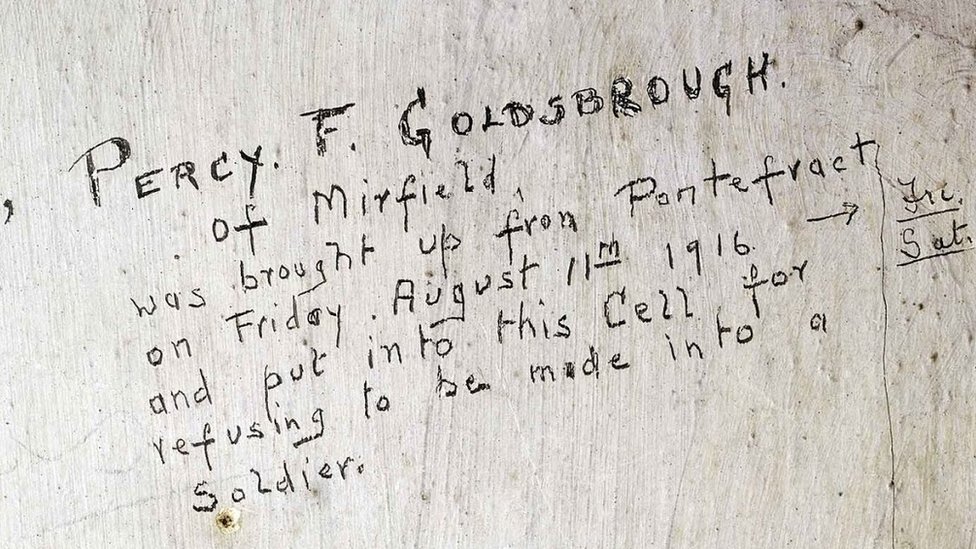 PERCY. F. GOLDSBROUGH.
of Mirfield,
was brought up from Pontefract
on Friday. August 11th 1916
and put into this Cell for
refusing to be made into a
Soldier.
→ Fri.
Sat.